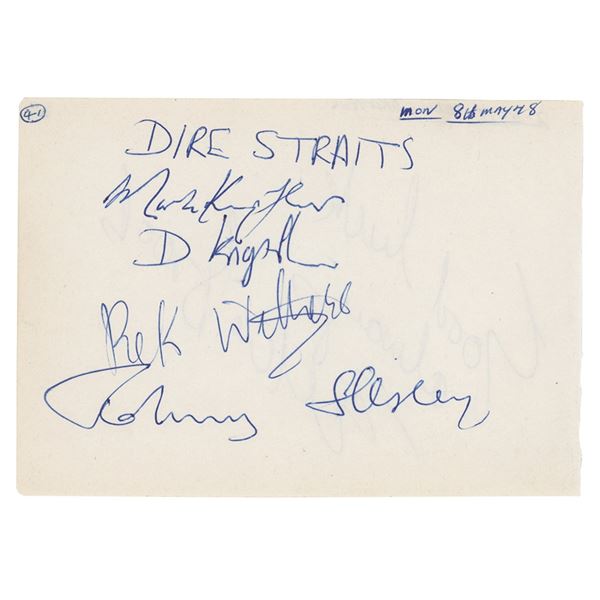 4-1
MON 8th MAY 78
DIRE STRAITS
Mark Knopfler
D Knopfler
Pick Withers
Johnny Illsley